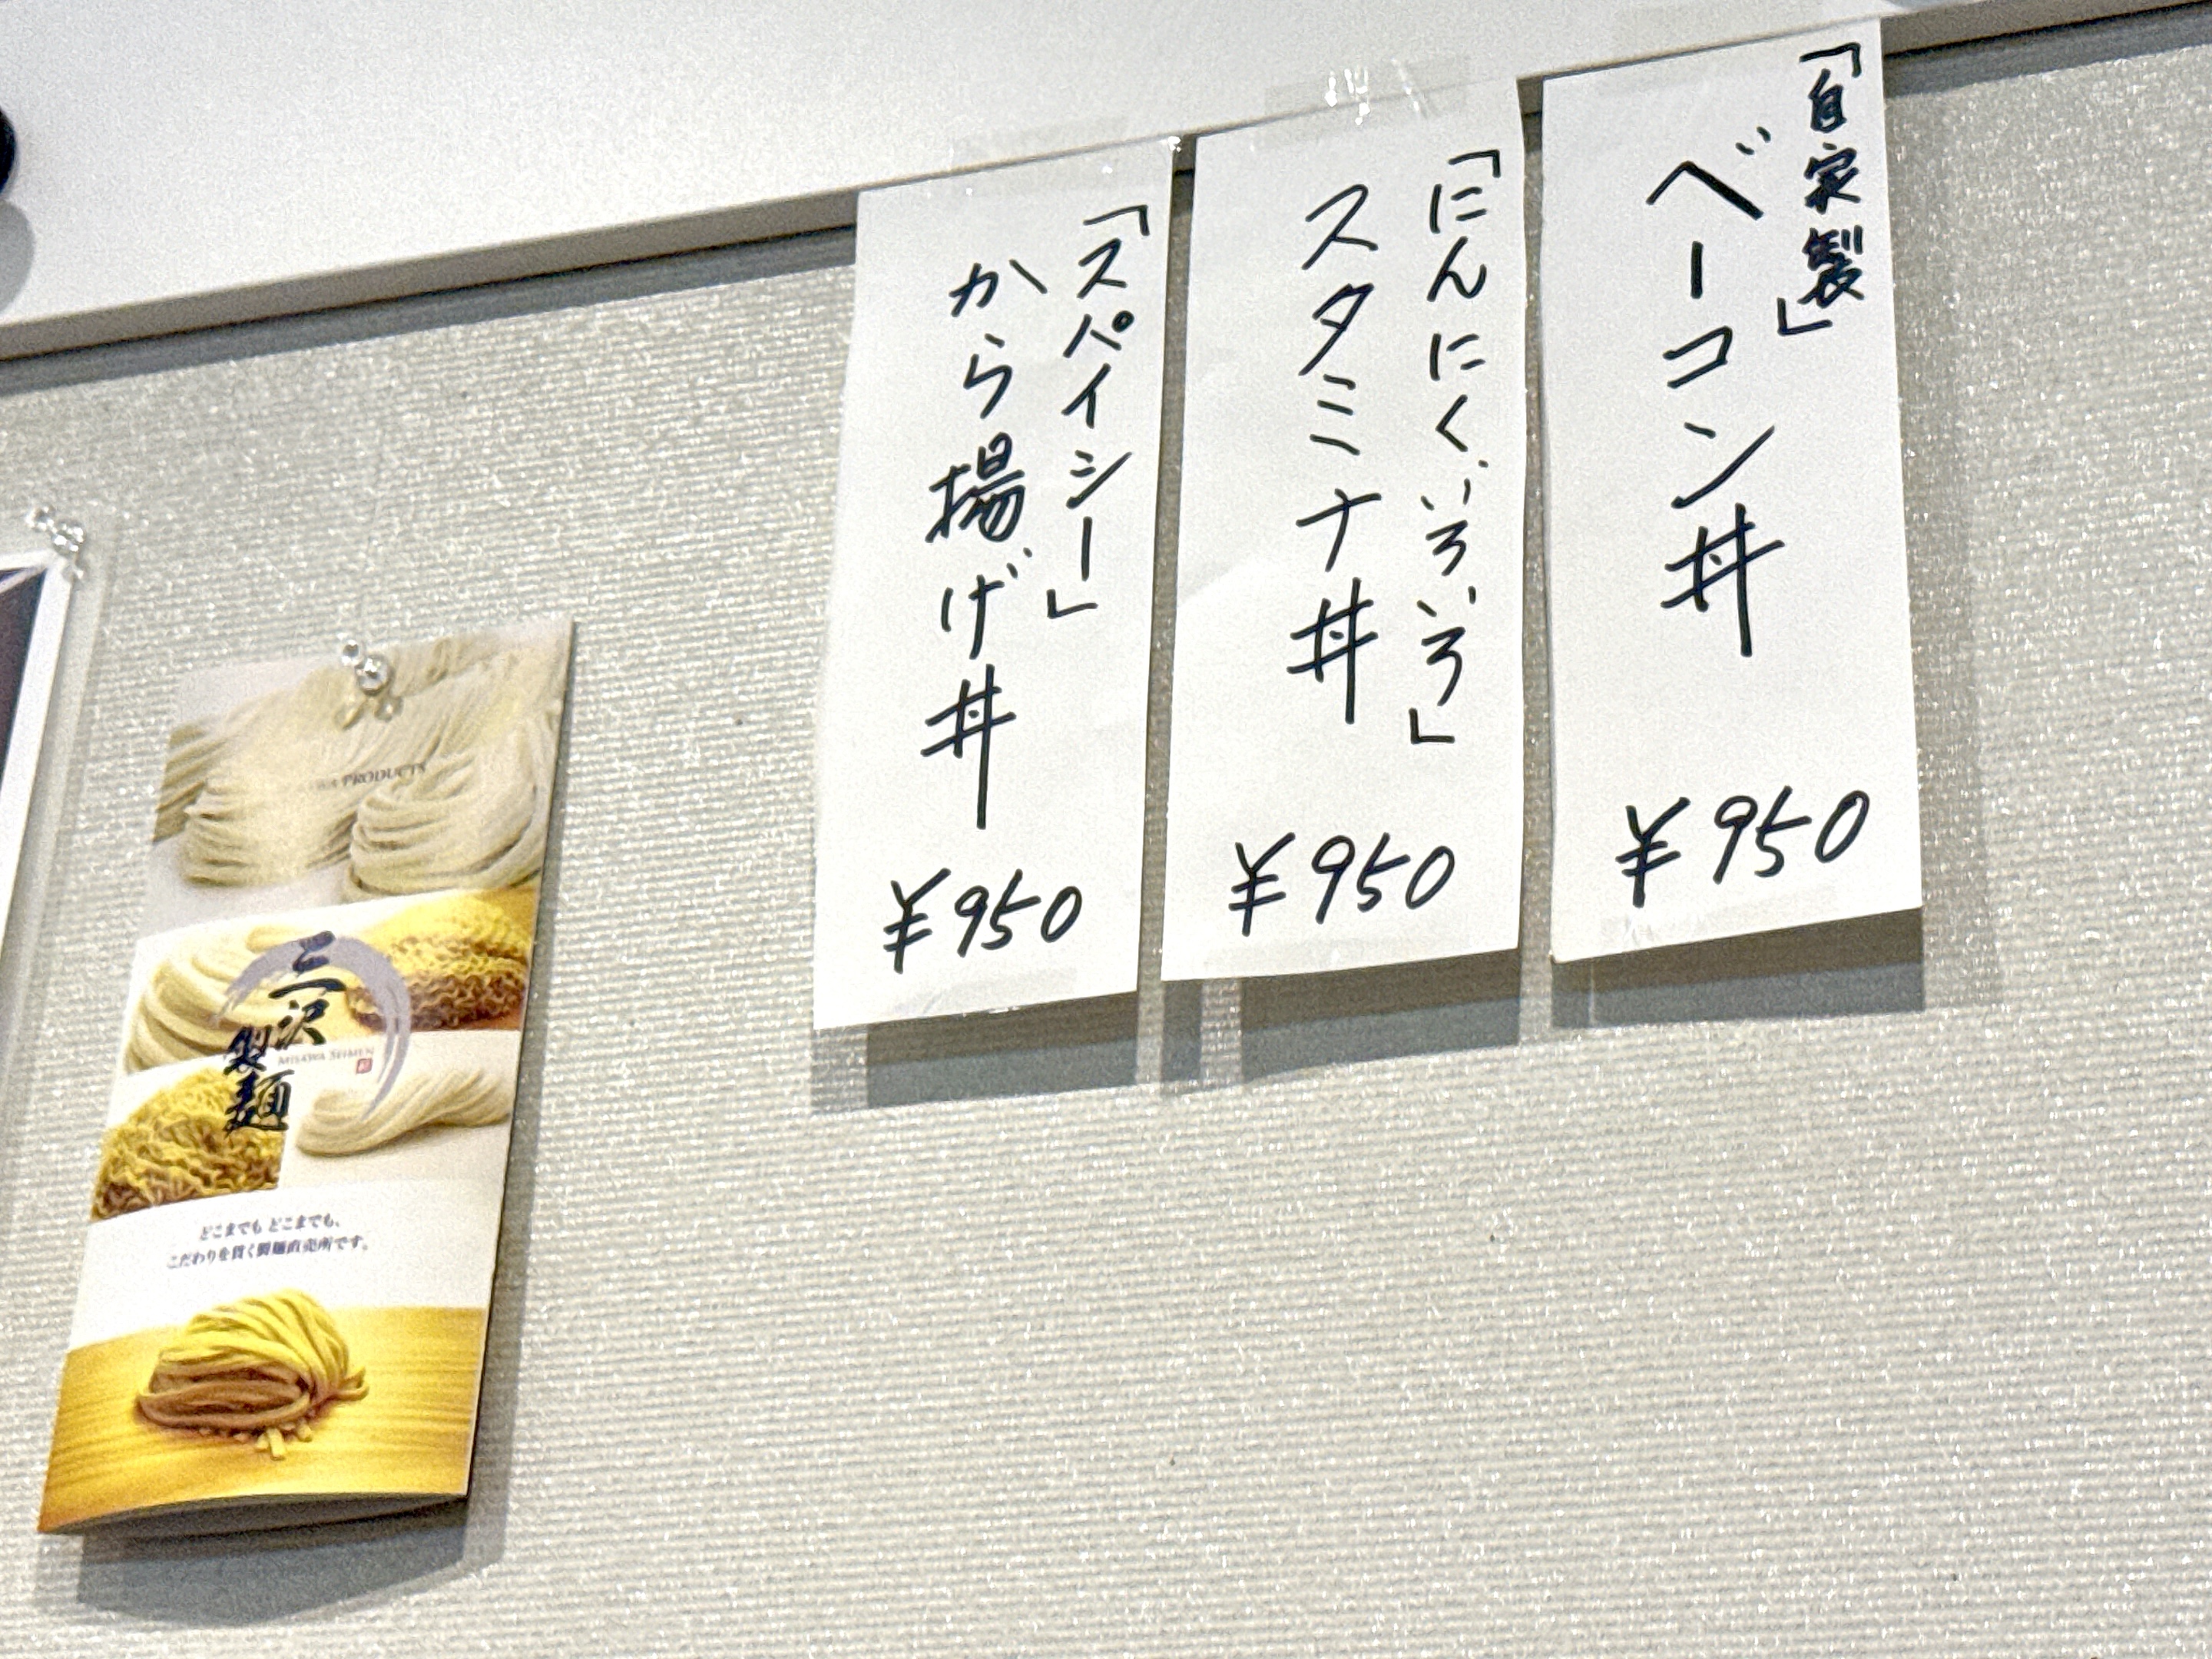 「自家製」
ベーコン丼
¥950
「にんにくごろごろ」
スタミナ丼
¥950
「スパイシー」
から揚げ丼
¥950
PRODUCTS
三沢
製麺
MISAWA SEIMEN
どこまでも どこまでも、
こだわりを貫く製麺直売所です。